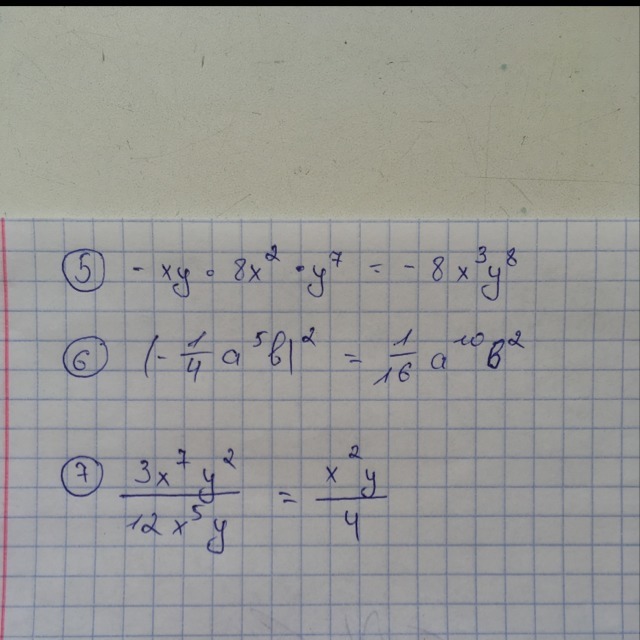 ⑤ - xy · 8x² · y⁷ = - 8x³y⁸
⑥ (- 1/4 a⁵b)² = 1/16 a¹⁰b²
⑦ 3x⁷y² / 12x⁵y = x²y / 4